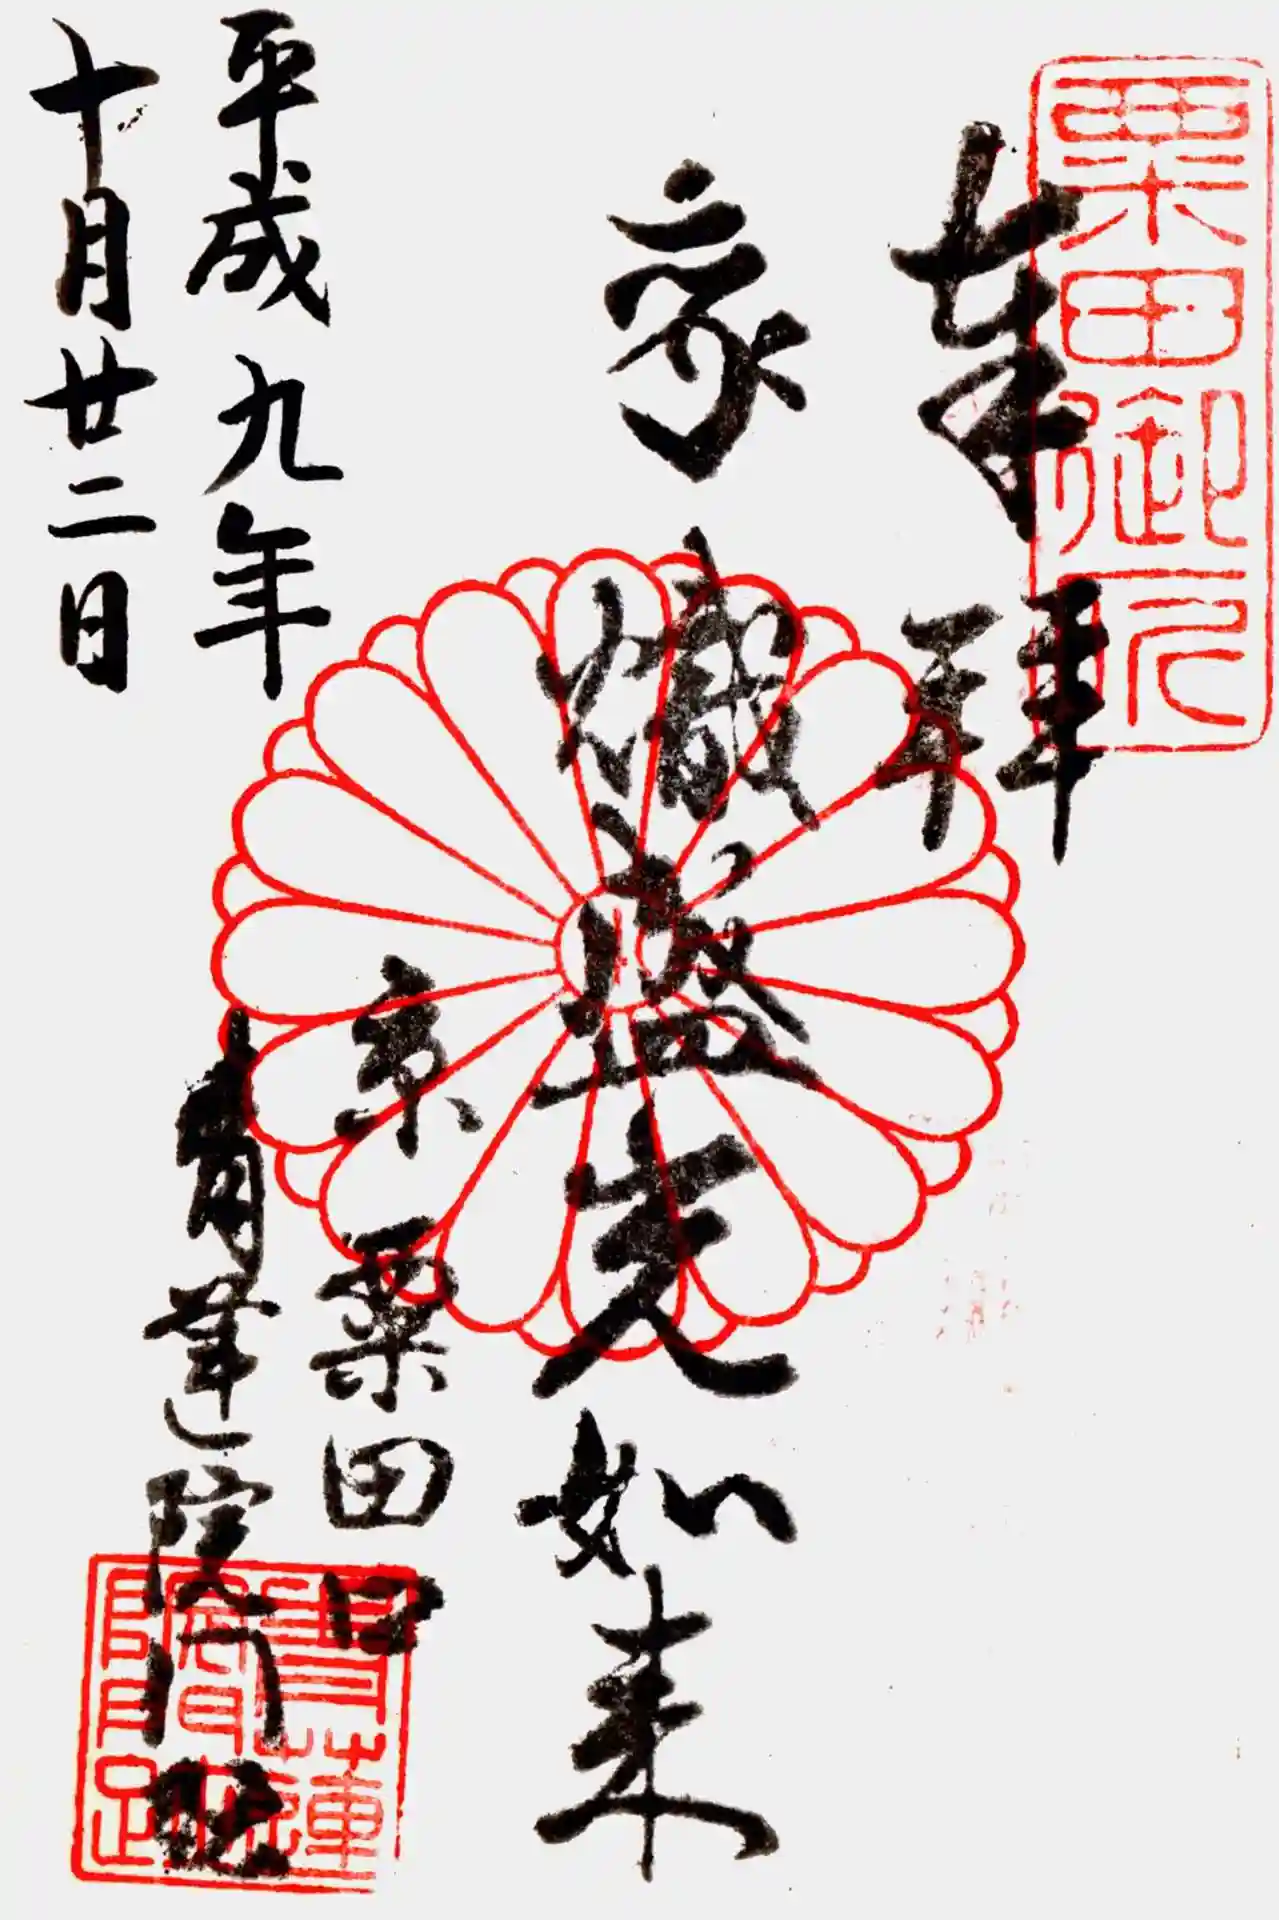 粟田御所
奉拝
熾盛光如来
京粟田口
青蓮院門跡
青蓮院門跡
平成九年
十月廿二日